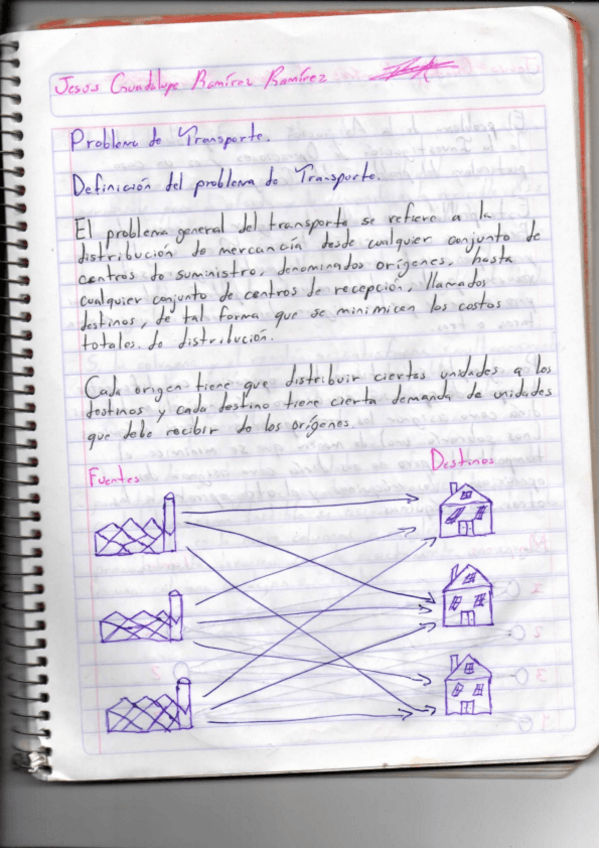 Jesús Guadalupe Ramírez Ramírez
Problema de Transporte.
Definición del problema de Transporte.
El problema general del transporte se refiere a la
distribución de mercancía desde cualquier conjunto de
centros de suministro, denominados orígenes, hasta
cualquier conjunto de centros de recepción, llamados
destinos, de tal forma que se minimicen los costos
totales de distribución.
Cada origen tiene que distribuir ciertas unidades a los
destinos y cada destino tiene cierta demanda de unidades
que debe recibir de los orígenes.
Fuentes
Destinos